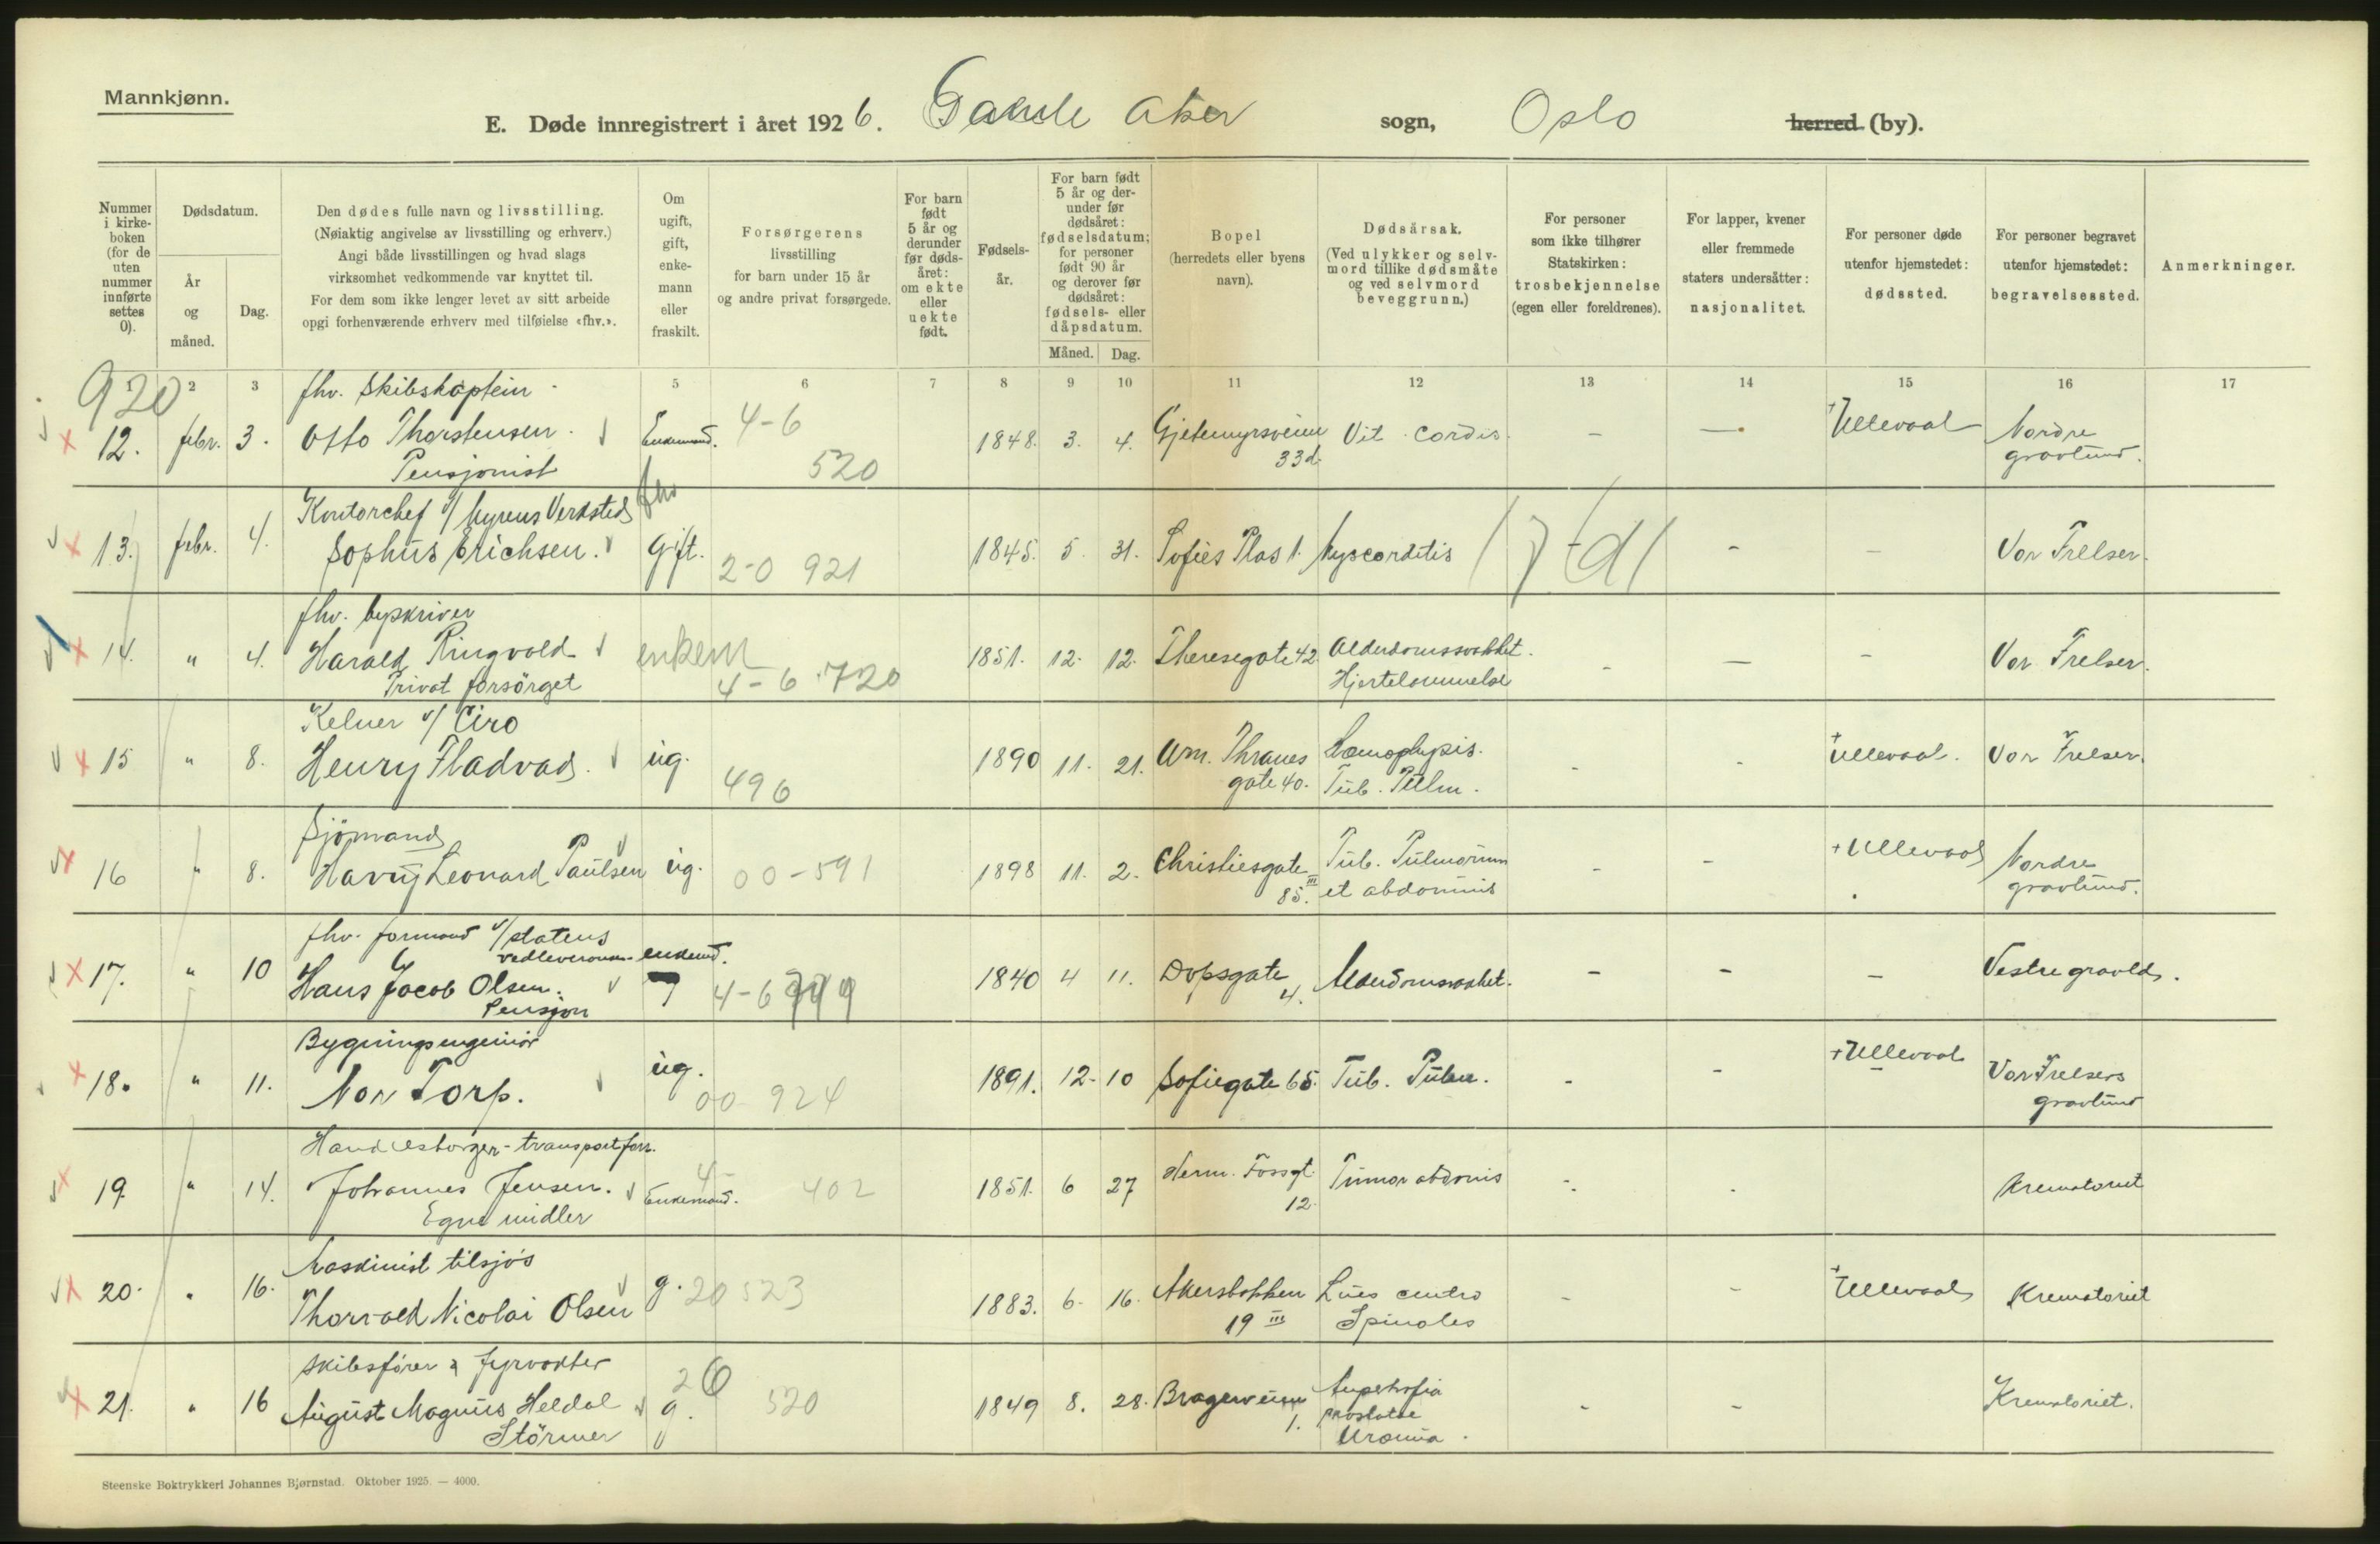 Mannkjønn.
E. Døde innregistrert i året 1926. Gamle Aker sogn, Oslo herred (by).
Nummer i kirkeboken (for de uten nummer innførte settes 0).
Dødsdatum.
År og måned.
Dag.
Den dødes fulle navn og livsstilling.
(Nøiaktig angivelse av livsstilling og erhverv.)
Angi både livsstillingen og hvad slags
virksomhet vedkommende var knyttet til.
For dem som ikke lenger levet av sitt arbeide
opgi forhenværende erhverv med tilføielse «fhv.».
Om ugift, gift, enkemann eller fraskilt.
Forsørgerens
livsstilling
for barn under 15 år
og andre privat forsørgede.
For barn født 5 år og derunder før dødsåret: om ekte eller uekte født.
Fødselsår.
For barn født 5 år og derunder før dødsåret: fødselsdatum; for personer født 90 år og derover før dødsåret: fødsels- eller dåpsdatum.
Måned. Dag.
Bopel
(herredets eller byens
navn).
Dødsårsak.
(Ved ulykker og selvmord tillike dødsmåte og ved selvmord beveggrunn.)
For personer
som ikke tilhører
Statskirken:
trosbekjennelse
(egen eller foreldrenes).
For lapper, kvener
eller fremmede
staters undersåtter:
nasjonalitet.
For personer døde
utenfor hjemstedet:
dødssted.
For personer begravet
utenfor hjemstedet:
begravelsessted.
Anmerkninger.
1 2 3 5 6 7 8 9 10 11 12 13 14 15 16 17
920
fhv. Skibskaptein
12. febr. 3. Otto Thorstensen. Enkemand. 4-6 1848. 3. 4. Gjetemyrsveien 33d. Vit. Cordis. - - +Ullevaal Nordre gravlund.
Pensjonist 520
Kontorchef v/ Myrens Verksted fhv
13. febr. 4. Sophus Erichsen. Gift. 2-0 921 1845. 5. 31. Sofies Plas 1. Myocarditis - - Vor Frelser.
fhv. byskriver
14. " 4. Harald Ringvold enkem 1851. 12. 12. Theresegate 42 Alderdomssvakhet. Hjertelammelse - - - Vor Frelser.
Privat forsörget 4-6 720
Kelner v/ Ciro
15 " 8. Henry Fladvad. ug. 496 1890 11. 21. Mar. Thranes gate 40. Hæmophysis. Tub. Pulm. - - +Ullevaal. Vor Frelser.
Sjömand
16 " 8. Harry Leonard Paulsen ug. 00-591 1898 11. 2. Christiesgate 85. III Tub. Pulmonum et abdominis - - +Ullevaal Nordre gravlund.
fhv. formand v/ statens
17. " 10 Hans Jacob Olsen. enkemd. 4-6 1840 4 11. Dopsgate 4. Alderdomsvakhet. - - - Vestre gravld.
Pensjon
Bygningsingeniör
18. " 11. Nor Torp. ug. 00-924 1891. 12. 10 Sofiegate 65. Tub. Pulm. - - +Ullevaal Vor Frelsers gravlund
Handelsborger-transportforr.
19. " 14. Johannes Jensen. Enkemand. 4- 402 1851. 6 27 Herm. Fossgt. 12. Tumor abdomis - - Krematoriet
Egne midler
Maskinist tilsjös
20. " 16. Thorvald Nicolai Olsen g. 20 523 1883. 6. 16. Akersbakken 19 III Lues centro Spinales - - +Ullevaal Krematoriet
Skibsfører & fyrvokter
21. " 16 August Magnus Heldal Störmer g. 26 520 1849 8. 28. Brageveien 1. Hypertrofia prostatae Uræmia. - - Krematoriet.
Steenske Boktrykkeri Johannes Bjørnstad. Oktober 1925. — 4000.